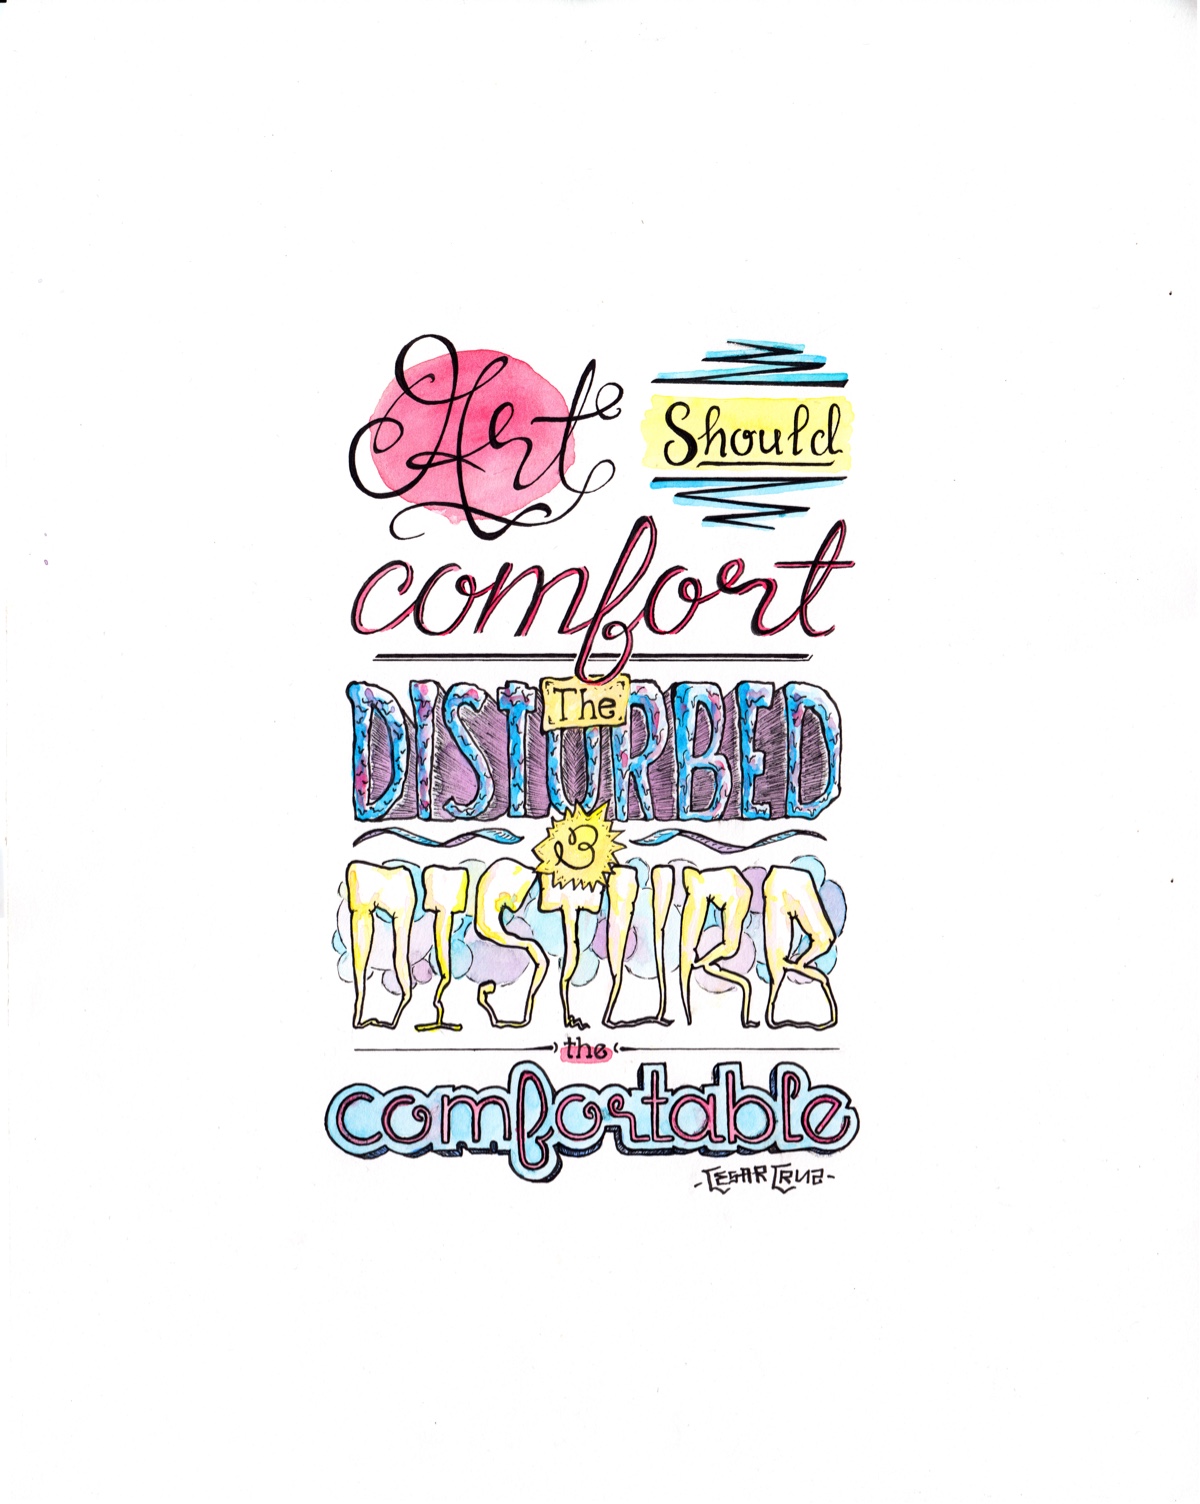 Art Should
comfort
The
DISTURBED
&
DISTURB
the
comfortable
-CESAR CRUZ-